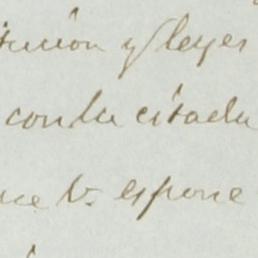 tucion y leyes
con la citada
ue V. espone